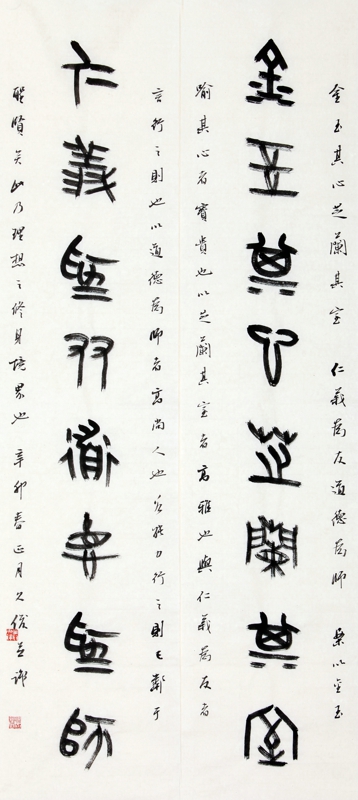 金玉其心芝蘭其室
仁義為友道德為師
金玉其心芝蘭其室 仁義為友道德為師 是以金玉
喻其心者寶貴也以芝蘭其室者高雅也與仁義為友者
言行之則也以道德為師者高尚人也若能力行之則已鄰于
聖賢矣此乃理想之修身境界也 辛卯春正月